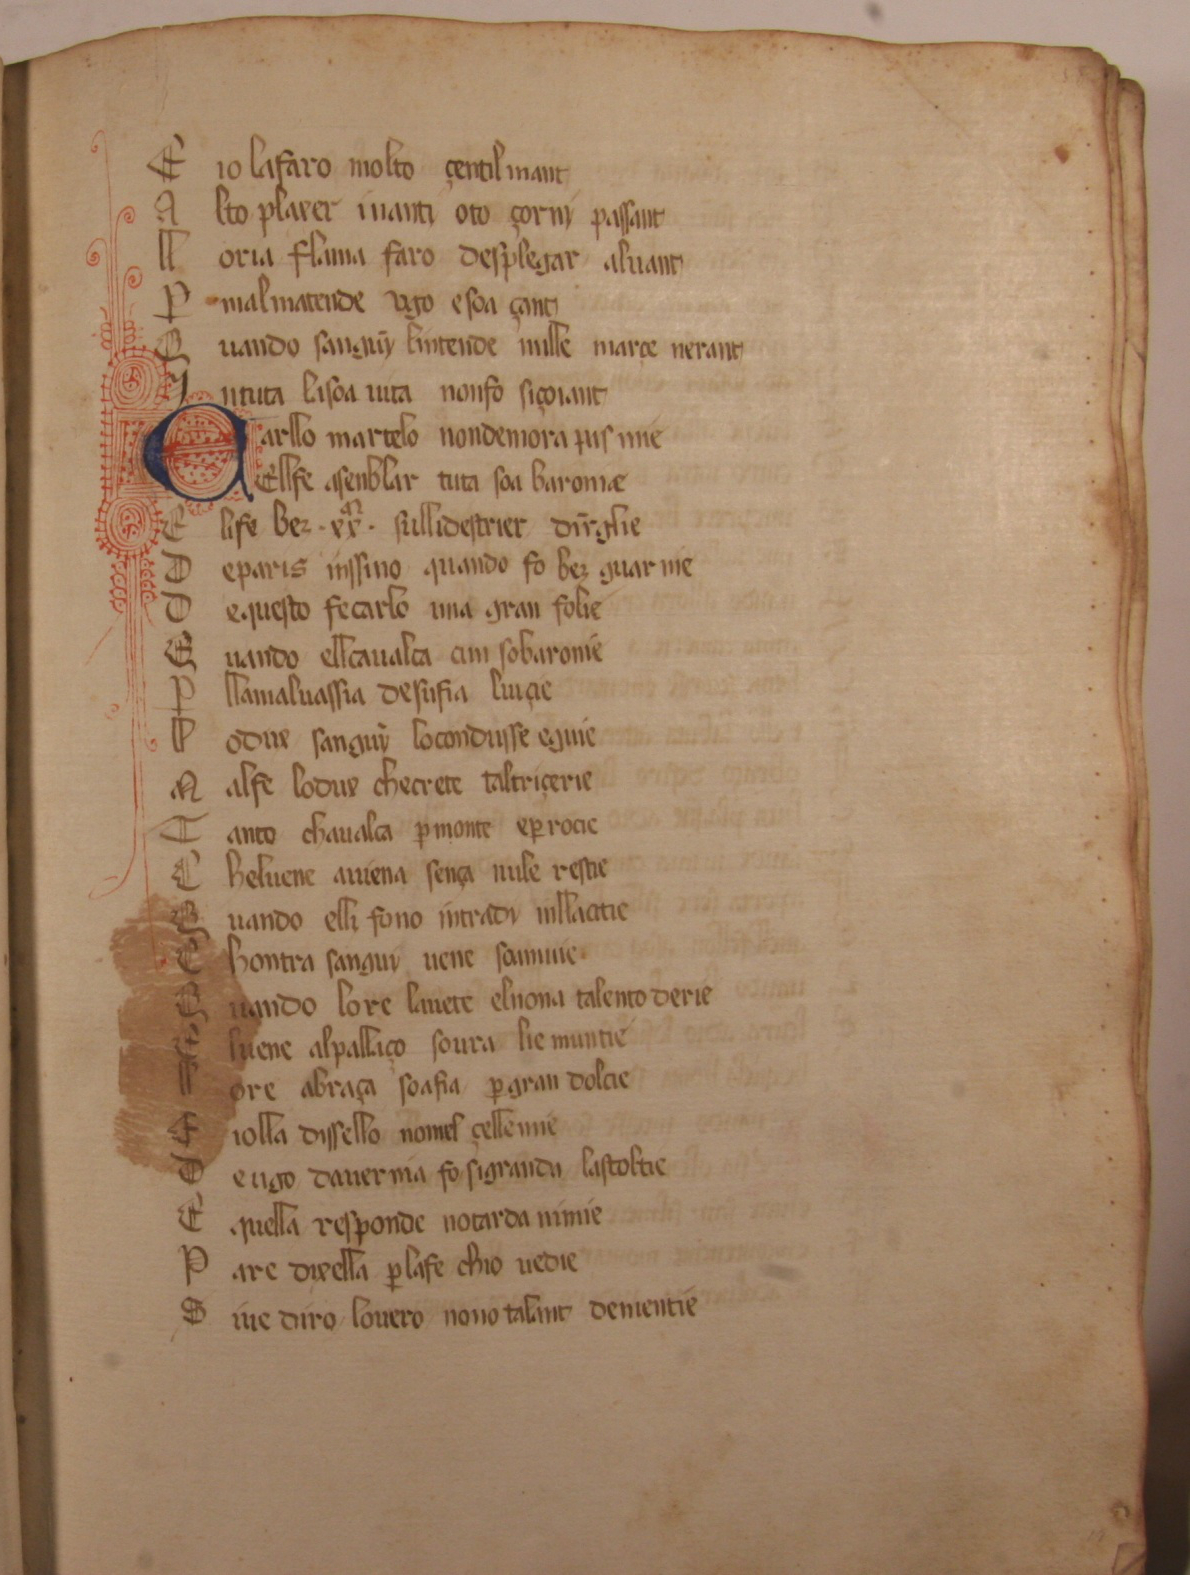 E io lafaro molto çentilmant
A lto plaxer inanti oto çorni passant
ll oria flama faro desplegar aluant
P malmatende ugo esoa çant
Q uando sanguin lintende mille marçe nerant
I ntuta lisoa uita nonfo siçoiant
C arllo martelo nondemora pus mie
Ellfe asenblar tuta soa baronie
E life bez .xx.m sullidestrier dirglie
D eparis inssino quando fo bez guarnie
D equesto fecarlo una gran folie
Q uando ellcaualca cun sobaronie
P llamaluassia desufia luiçie
ll odux sanguin locondusse eguie
N alfe lodux checrete taltriçerie
T anto chaualca pmonte eprocie
C heluene auiena sença nule restie
Q uando elli fono intradi inllacitie
C hontra sanguin uene soamuie
Q uando lore lauete elnona talento derie
E luene alpallaço soura lie muntie
ll ore abraça soafia pgran dolcie
F iolla dissello nomel çellemie
D eugo dauernia fo sigranda lastoltie
E quella responde notarda nimie
P are dixella plafe chio uedie
S iue diro louero nono talant dementie